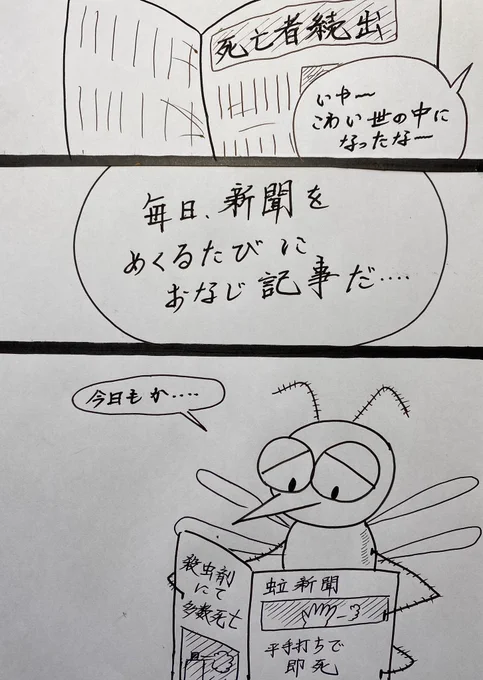 死亡者続出
いやー
こわい世の中に
なったなー
毎日、新聞を
めくるたびに
おなじ記事だ‥‥
今日もか‥‥
殺虫剤
にて
多数死亡
蚊新聞
平手打ちで
即死